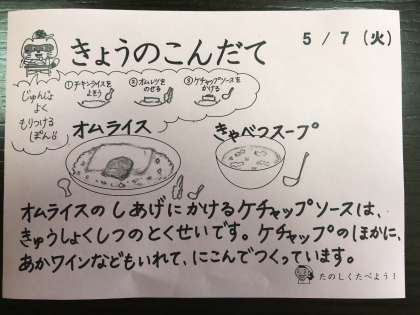 きょうのこんだて
5/7(火)
じゅんじょ
よく
もりつける
ぽん!!
①チキンライスを
よそう
②オムレツを
のせる
③ケチャップソースを
かける
オムライス
きゃべつスープ
オムライスのしあげにかけるケチャップソースは、
きゅうしょくしつのとくせいです。ケチャップのほかに、
あかワインなどもいれて、にこんでつくっています。
たのしくたべよう!